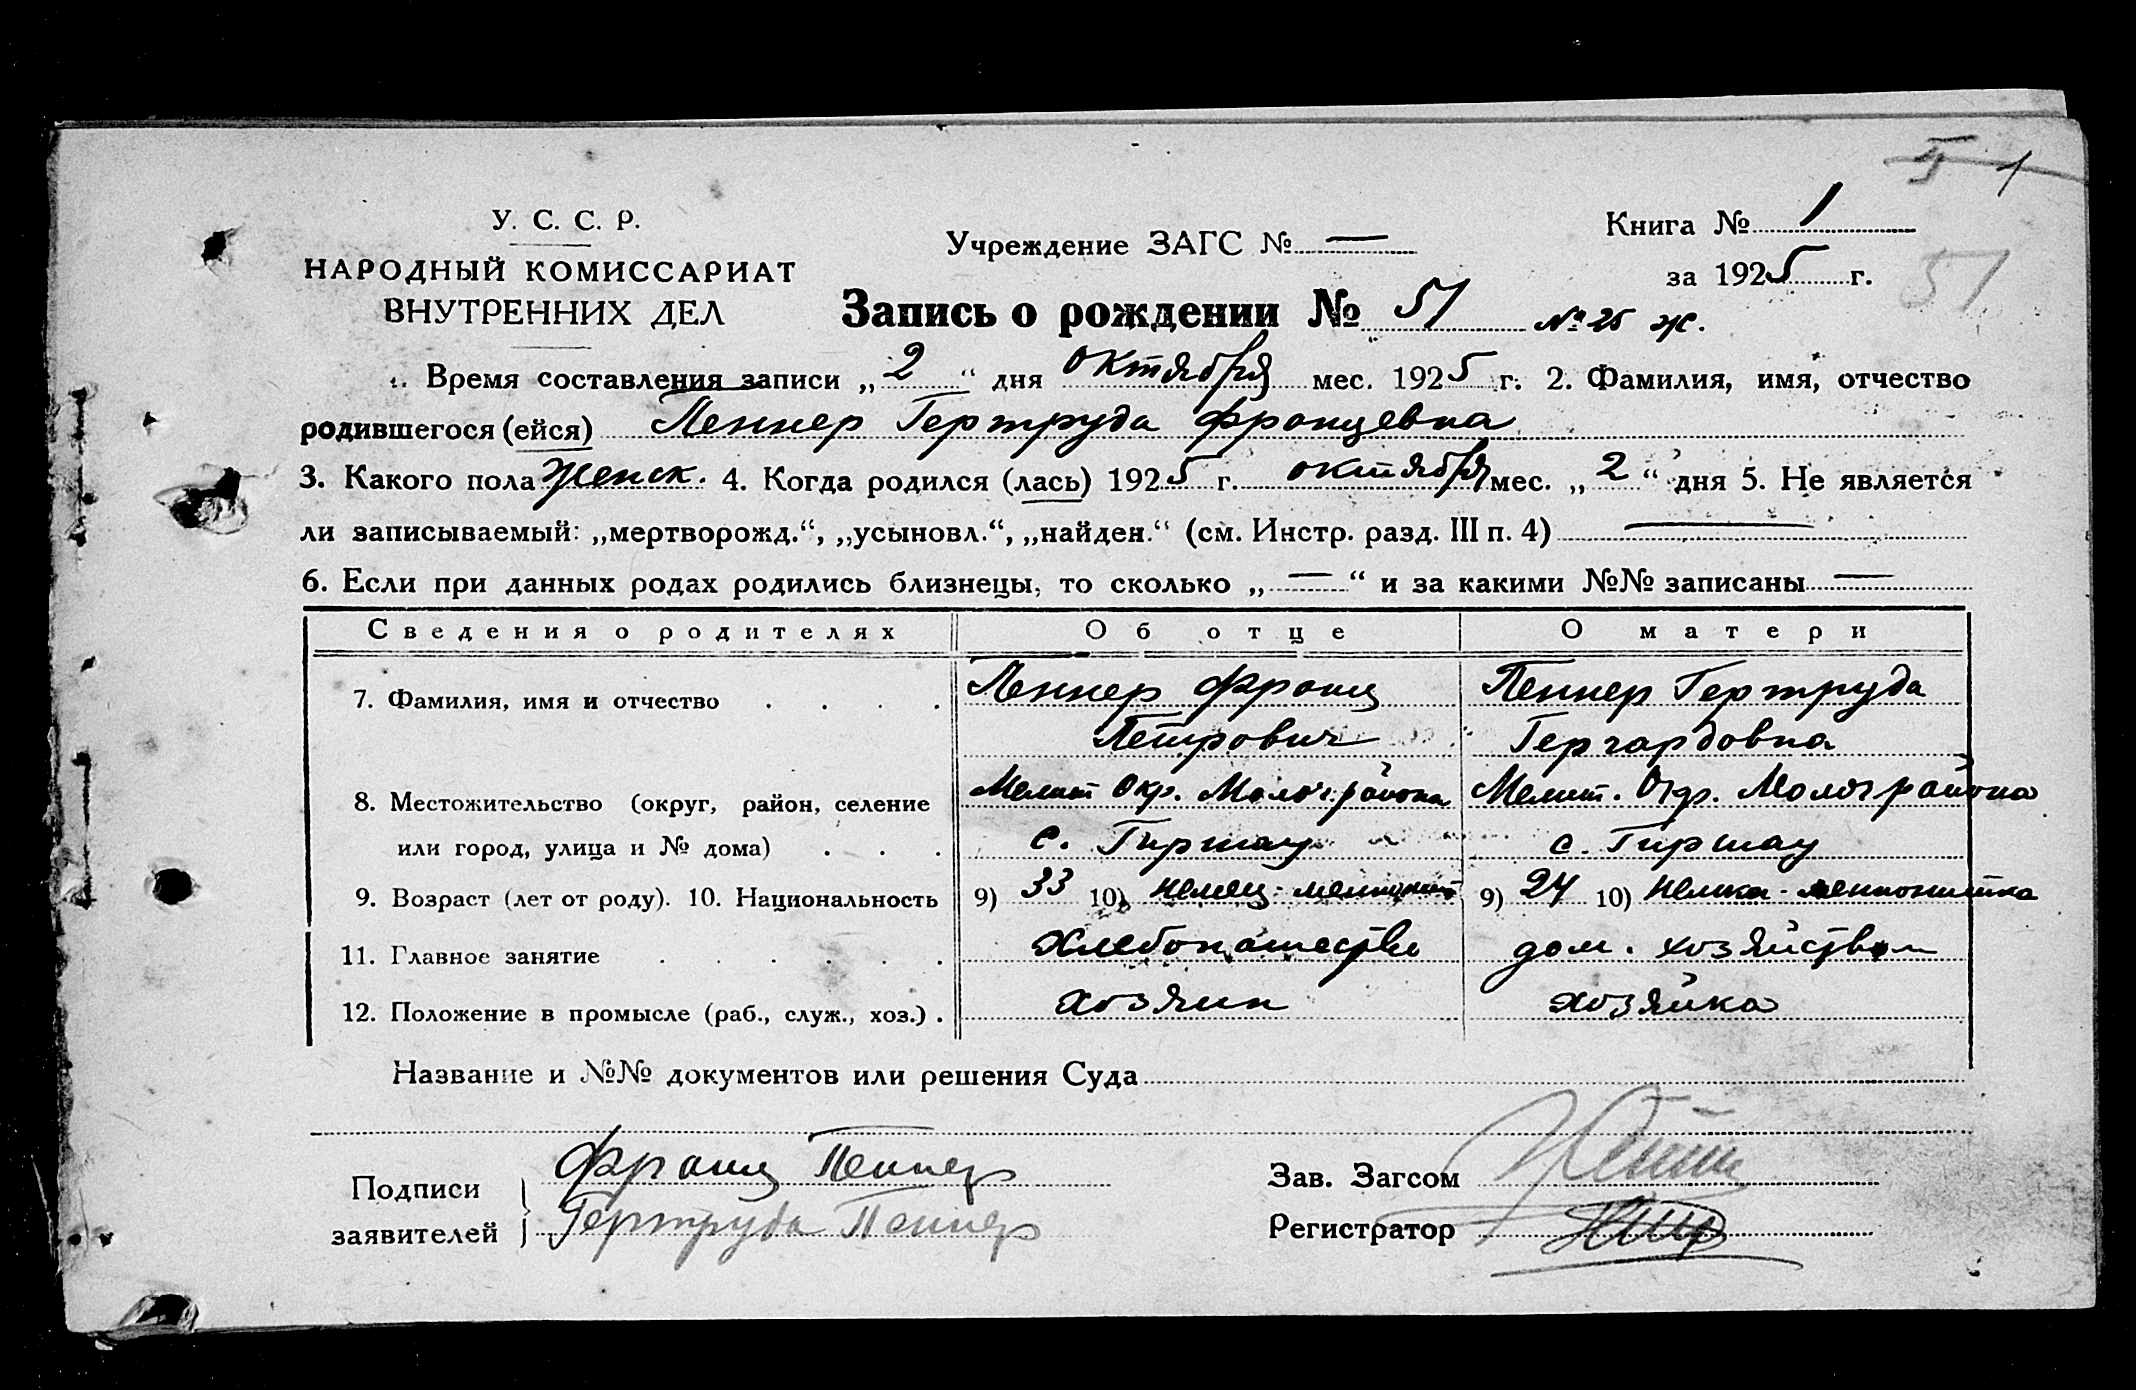 51
У. С. С. Р.
НАРОДНЫЙ КОМИССАРИАТ
ВНУТРЕННИХ ДЕЛ
Учреждение ЗАГС № —
Книга № 1
за 1925 г.
51
Запись о рождении № 51 № 25 ж.
1. Время составления записи „2“ дня октября мес. 1925 г. 2. Фамилия, имя, отчество
родившегося (ейся) Пеннер Гертруда Францевна
3. Какого пола женск. 4. Когда родился (лась) 1925 г. октября мес. „2“ дня 5. Не является
ли записываемый: „мертворожд.“, „усыновл.“, „найден.“ (см. Инстр. разд. III п. 4) —
6. Если при данных родах родились близнецы, то сколько „—“ и за какими №№ записаны —
Сведения о родителях Об отце О матери
7. Фамилия, имя и отчество Пеннер Франц Пеннер Гертруда
Петрович Гергардовна
8. Местожительство (округ, район, селение Мелит. Окр. Молоч. района Мелит. Окр. Молоч района
или город, улица и № дома) с. Гиршау с. Гиршау
9. Возраст (лет от роду). 10. Национальность 9) 33 10) немец-меннонит 9) 24 10) немка-меннонитка
11. Главное занятие Хлебопашество дом. хозяйством
12. Положение в промысле (раб., служ., хоз.) хозяин хозяйка
Название и №№ документов или решения Суда
Подписи заявителей
Франц Пеннер
Гертруда Пеннер
Зав. Загсом
Регистратор